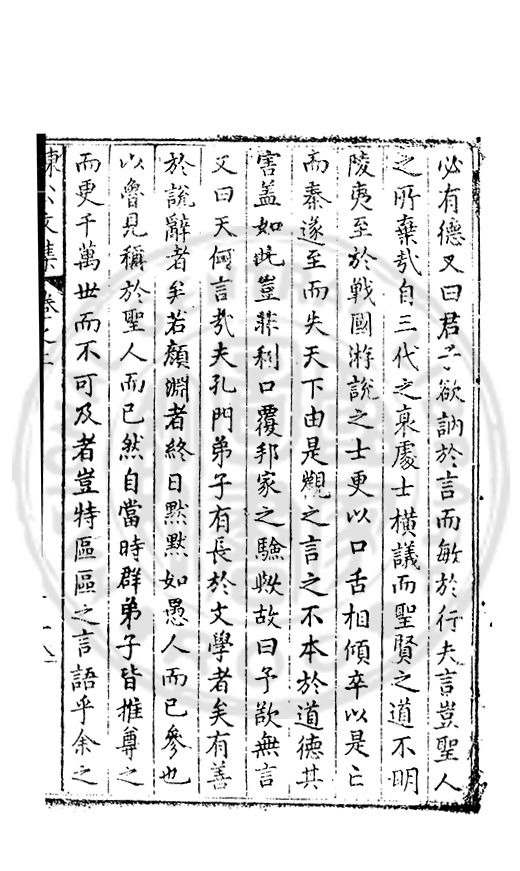 必有德又曰君子欲訥於言而敏於行夫言豈聖人
之所棄哉自三代之衰處士橫議而聖賢之道不明
陵夷至於戰國游說之士更以口舌相傾卒以是亡
而秦遂至而失天下由是觀之言之不本於道德其
害盖如此豈非利口覆邦家之驗歟故曰予欲無言
又曰天何言哉夫孔門弟子有長於文學者矣有善
於說辭者矣若顏淵者終日默默如愚人而已參也
以魯見稱於聖人而已然自當時群弟子皆推尊之
而更千萬世而不可及者豈特區區之言語乎余之
陳公文集 卷之二